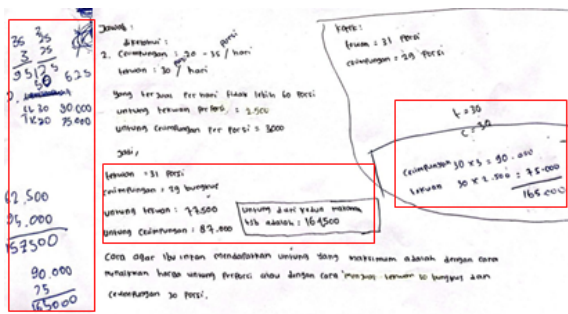 35 35
3 25
95 175
50
625
1k 30 90.000
1k20 75.000
62.500
95.000
157500
90.000
75
165000
Jawab:
diketahui:
2. Ceimpungan : 20 - 35 porsi / hari
tekwan : 30 porsi / hari
yang terjual per hari tidak lebih 60 porsi
untung tekwan per porsi = 2.500
untung ceimpungan per porsi = 3000
Jadi,
tekwan = 31 porsi
ceimpungan = 29 bungkus
untung tekwan : 77.500
untung ceimpungan : 87.000
untung dari kedua makanan
tsb adalah : 164.500
Cara agar ibu intan mendapatkan untung yang maksimum adalah dengan cara
menaikkan harga untung perporsi atau dengan cara tekwan 30 bungkus dan
ceimpungan 30 porsi.
tekwan = 31 porsi
ceimpungan = 29 porsi
t = 30
c = 30
ceimpungan 30 x 3 = 90.000
tekwan 30 x 2.500 = 75.000
165.000